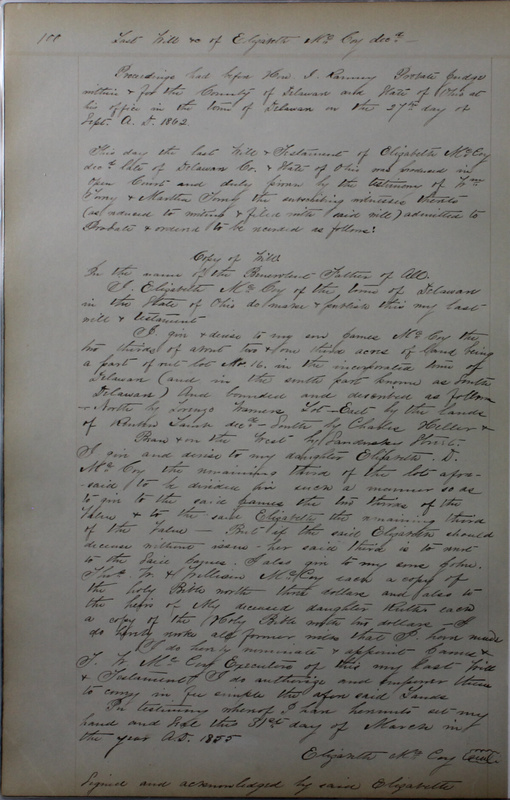 100 Last Will &c of Elizabeth McCoy decd —
Proceedings had before Hon. Probate Judge
within & for the County of Delaware and State of Ohio at
his office in the town of Delaware on the 27th day of
Sept A. D. 1862
This day the last Will & Testament of Elizabeth McCoy
decd late of Delaware Co. & State of Ohio was produced in
Open Court and duly proven by the testimony of Wm
& Martha the subscribing witnesses thereto
(as reduced to writing & filed with said will) admitted to
Probate & ordered to be recorded as follows:
Copy of Will.
In the name of the Benevolent Father of All:
I. Elizabeth McCoy of the town of Delaware
in the State of Ohio do make & publish this my last
will & testament
I give & devise to my son James McCoy the
two thirds of about two & one third acres of land being
a part of out lot No 16. in the incorporated town of
Delaware (and in the south part known as South
Delaware) And bounded and described as follows
- North by Lot - East by the lands
of Reuben decd - South by Charles &
& on the West by Sandusky Street.
I give and devise to my daughter Elizabeth D.
McCoy the remaining third of the lot afore-
-said to be divided in such a manner so as
to give to the said James the two thirds of the
Value & to the said Elizabeth the remaining third
of the Value — But if the said Elizabeth should
decease without issue - her said third is to and
to the said James. I also give to my sons John.
Thos. W. & William McCoy each a copy of
the holy Bible worth three dollars and also to
the heirs of My deceased daughter each
a copy of the Holy Bible worth two dollars - I
do hereby revoke all former wills that I have made
I do hereby nominate & appoint James &
T. W. McCoy Executors of this my last Will
& Testament & I do authorize and empower them
to convey in fee simple the afore said Lands
In testimony whereof I have hereunto set my
hand and seal this 31st day of March in
the year A.D. 1855
Elizabeth McCoy seal
Signed and acknowledged by said Elizabeth